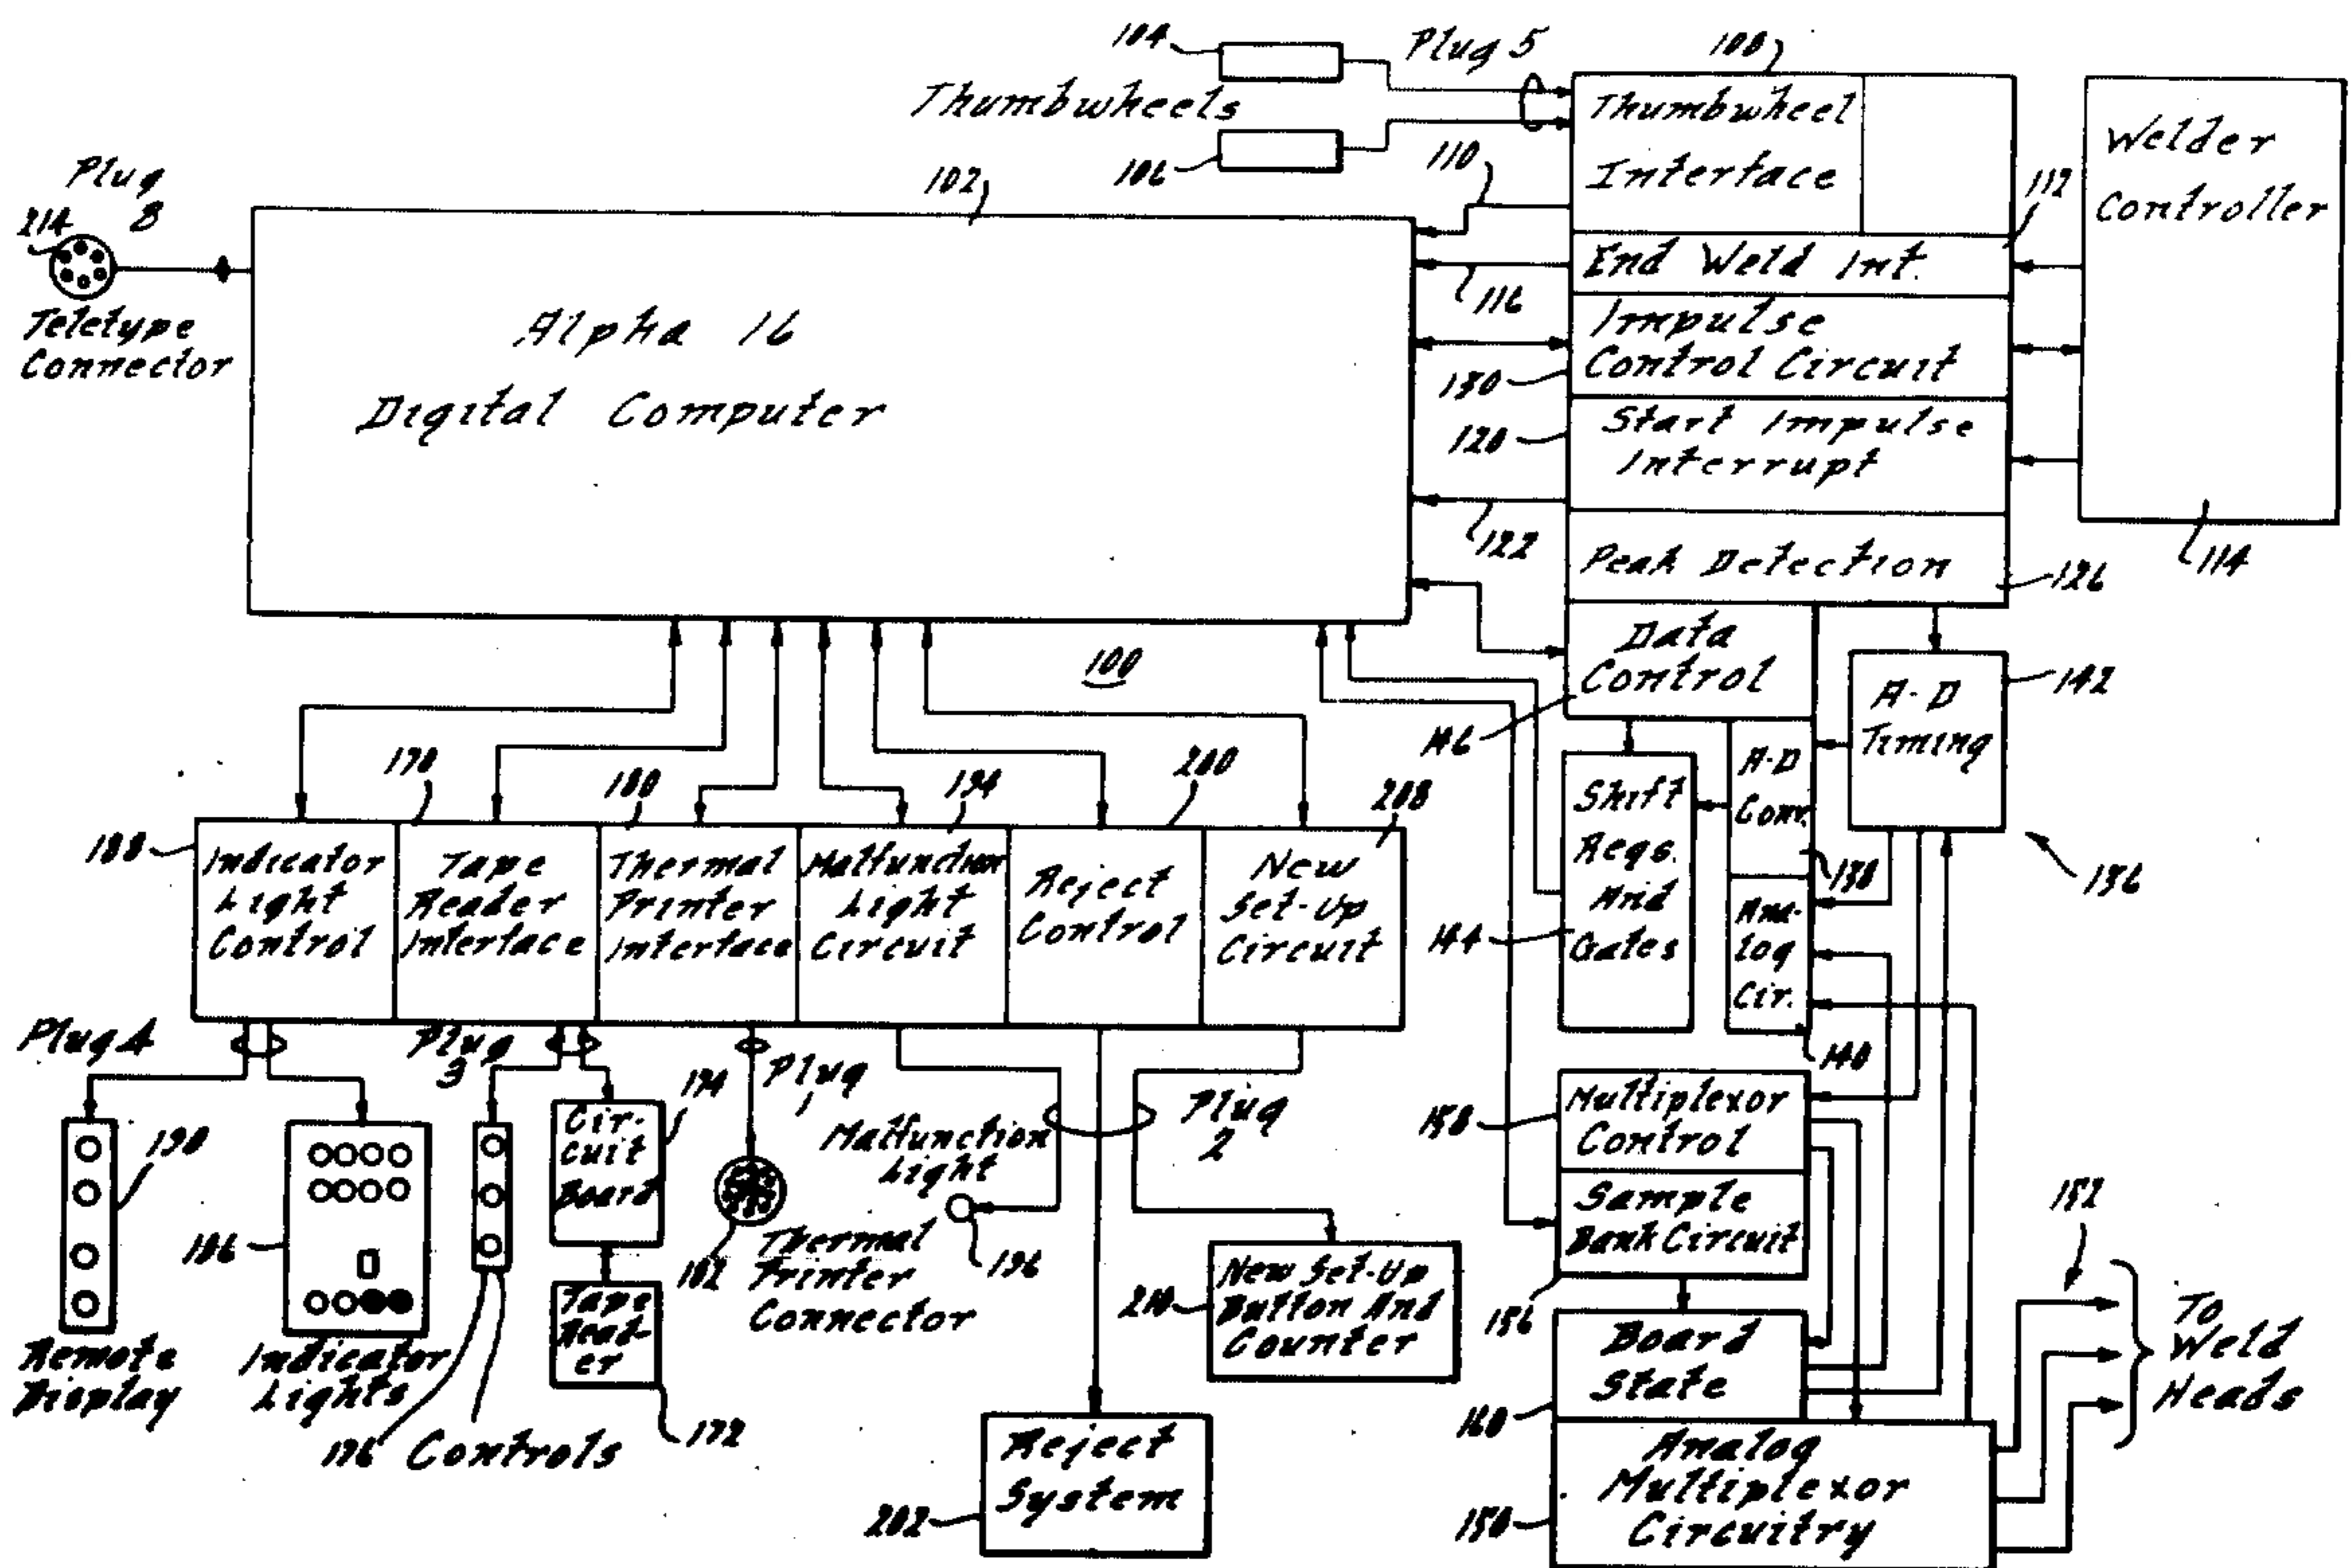 104
Plug 5
108
Thumbwheels
106
110
Thumbwheel
Interface
Welder
Controller
112
Plug
8
214
Teletype
Connector
102
Alpha 16
Digital Computer
End Weld Int.
116
Impulse
Control Circuit
130
Start Impulse
Interrupt
120
122
Peak Detection
126
114
100
Data
Control
146
A-D
Timing
142
136
Shift
Regs.
And
Gates
144
A-D
Conv.
138
Ana-
log
Cir.
140
188
170
180
194
200
208
Indicator
Light
Control
Tape
Reader
Interface
Thermal
Printer
Interface
Malfunction
Light
Circuit
Reject
Control
New
Set-Up
Circuit
Plug 4
Plug
3
Plug
1
Plug
2
190
Remote
Display
186
Indicator
Lights
176
Controls
Cir-
cuit
Board
174
Tape
Read-
er
172
182
Thermal
Printer
Connector
Malfunction
Light
196
210
New Set-Up
Button And
Counter
Reject
System
202
Multiplexor
Control
158
Sample
Bank Circuit
156
Board
State
160
Analog
Multiplexor
Circuitry
150
152
To
Weld
Heads